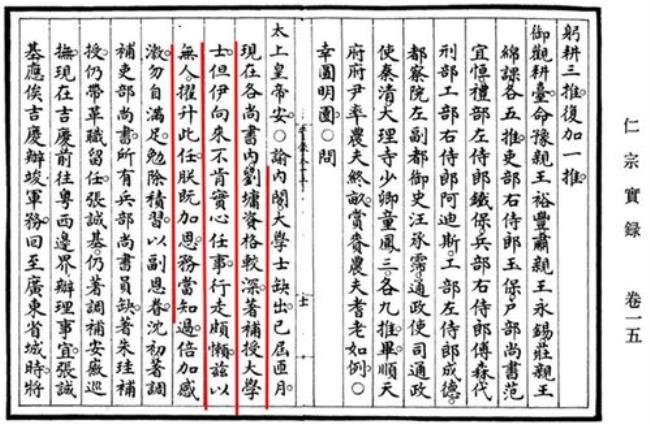 仁宗實錄 卷一五
躬耕三推復加一推
御觀耕臺命豫親王裕豐肅親王永錫莊親王
綿課各五推吏部右侍郎玉保戶部尚書范
宜恒禮部左侍郎鐵保兵部右侍郎傅森代
刑部工部右侍郎阿迪斯工部左侍郎成德
都察院左副都御史汪承霈通政使司通政
使秦清大理寺少卿童鳳三各九推畢順天
府府尹率農夫終畝賞賚農夫耆老如例〇
幸圓明園〇問
太上皇帝安〇諭內閣大學士缺出已屆匝月
現在各尚書內劉墉資格較深著補授大學
士但伊向來不肯實心任事行走頗懶茲以
無人擢升此任朕既加恩務當知過倍加感
激勿自滿足勉除積習以副恩眷沈初著調
補吏部尚書所有兵部尚書員缺著朱珪補
授仍帶革職留任張誠基仍著調補安徽巡
撫現在吉慶前往粵西邊界辦理事宜張誠
基應俟吉慶辦竣軍務回至廣東省城時將